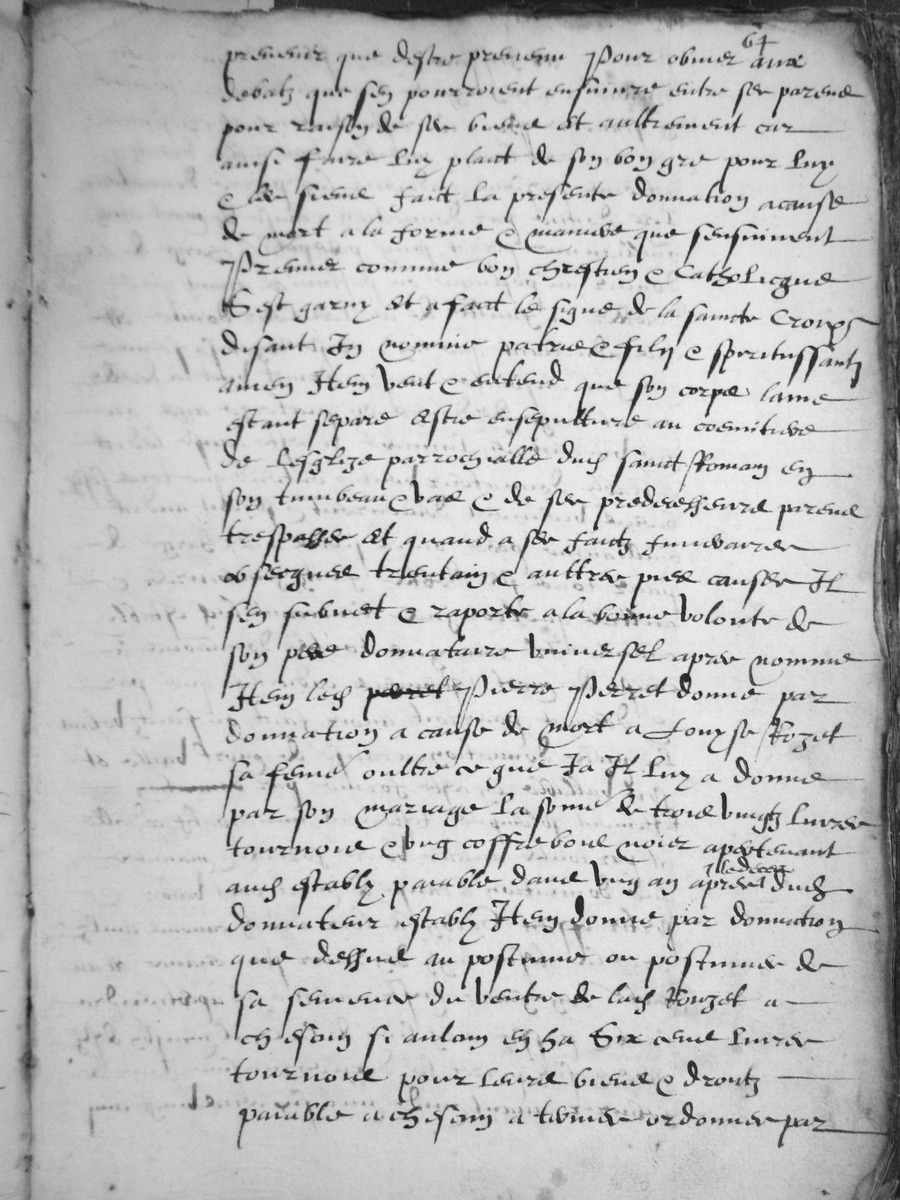 64
prevenir que destre prevenu Pour obvier aux
debatz que sen pourroient ensuivre entre ses parens
pour raison de ses biens et aultrement car
ainsi faire luy plaict de son bon gre pour luy
& les siens faict la presente donnation a cause
de mort a la forme & maniere que sensuivent
Premier comme bon chrestien & Catholicque
Sest garny et a faict le signe de la saincte Croix
disant In nomine patris & filii & spiritussancti
amen Item veut & entend que son corps lame
estant separe estre ensepulture au cœmitiere
de lesglize parrochialle dud sainct Romain en
son tumbeau & vas & de ses predecesseurs parens
trespasses et quand a ses faictz funeraires
obsecques trentain & aultres pies causes Il
sen submet & raporte a la bonne volonte de
son pere donnataire universel apres nomme
Item led Pierre Perret donne par
donnation a cause de mort a Louyse Rozet
sa feme oultre ce que Ja Il luy a donne
par son mariage la some de trois vingtz livres
tournois & ung coffre bois noier apertenant
aud estably paiable dans ung an apres le deces dud
donnateur estably Item donne par donnation
que dessus au postume ou postumes de
sa semence du ventre de lad Rouzet a
chescun si auloin en ha Six cens livres
tournois pour leurs biens & droitz
paiable a chescun a termes ordonnes par